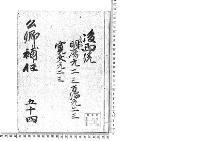 公卿補任
後西院
明暦元二三 万治元二三
寛文元二三
五十四